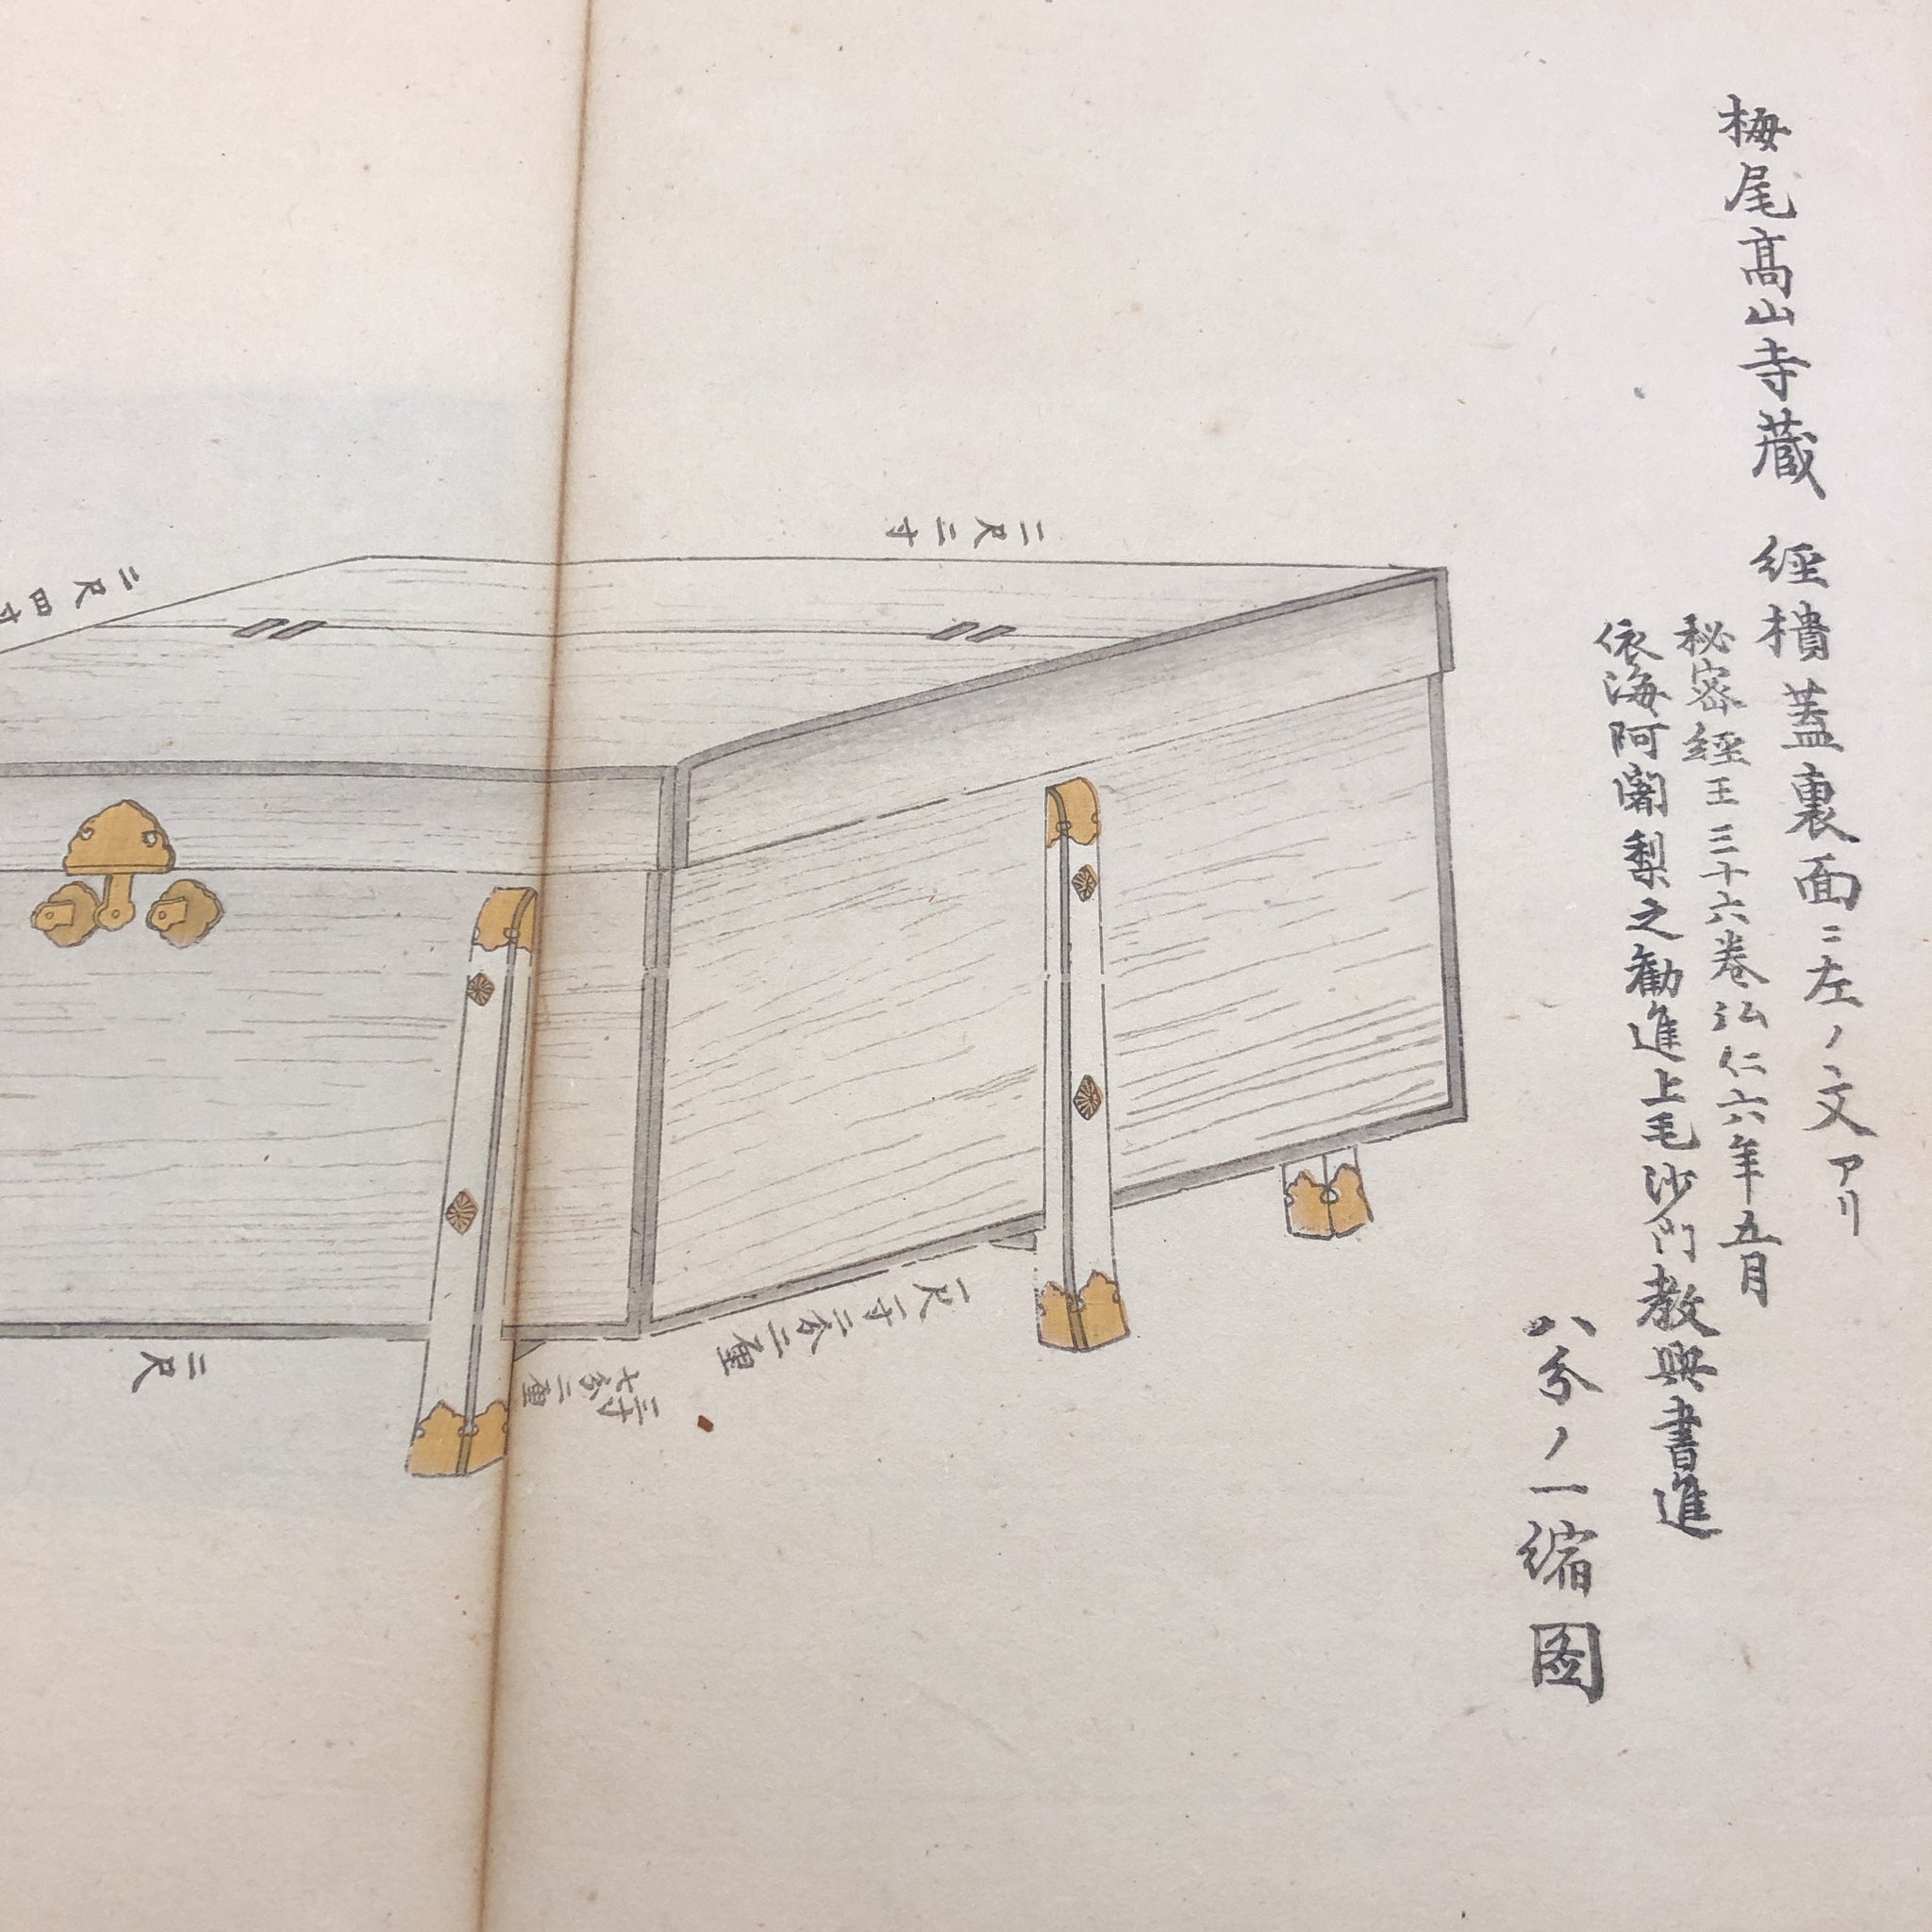 梅尾髙山寺蔵 經樻蓋裏面ニ左ノ文アリ
秘密經王三十六卷弘仁六年五月
依海阿闍梨之勧進上毛沙門教興書進
八分ノ一縮図
二尺二寸
二尺四寸
二尺一寸二分二厘
二寸七分二厘
二尺